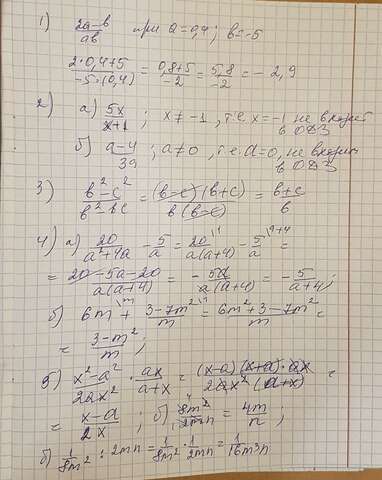 1) (2a-b)/(ab) при a=0,4; b=-5
(2·0,4+5)/(-5·(0,4)) = (0,8+5)/(-2) = 5,8/(-2) = -2,9
2) а) 5x/(x+1); x≠-1, т.е x=-1 не входит в ОДЗ
б) (a-4)/(3a); a≠0, т.е. a=0, не входит в ОДЗ
3) (b²-c²)/(b²-bc) = ((b-c)(b+c))/(b(b-c)) = (b+c)/b
4) а) 20/(a²+4a) - 5/a = 20\1/(a(a+4)) - 5\a+4/a =
= (20-5a-20)/(a(a+4)) = -5a/(a(a+4)) = -5/(a+4);
б) 6m\m + (3-7m²)\1/m = (6m²+3-7m²)/m =
= (3-m²)/m;
5) (x²-a²)/(2ax²) · ax/(a+x) = ((x-a)(x+a)·ax)/(2ax²(a+x)) =
= (x-a)/(2x); б) 8m²/(2mn) = 4m/n;
б) 1/(8m²) : 2mn = 1/(8m²) · 1/(2mn) = 1/(16m³n)